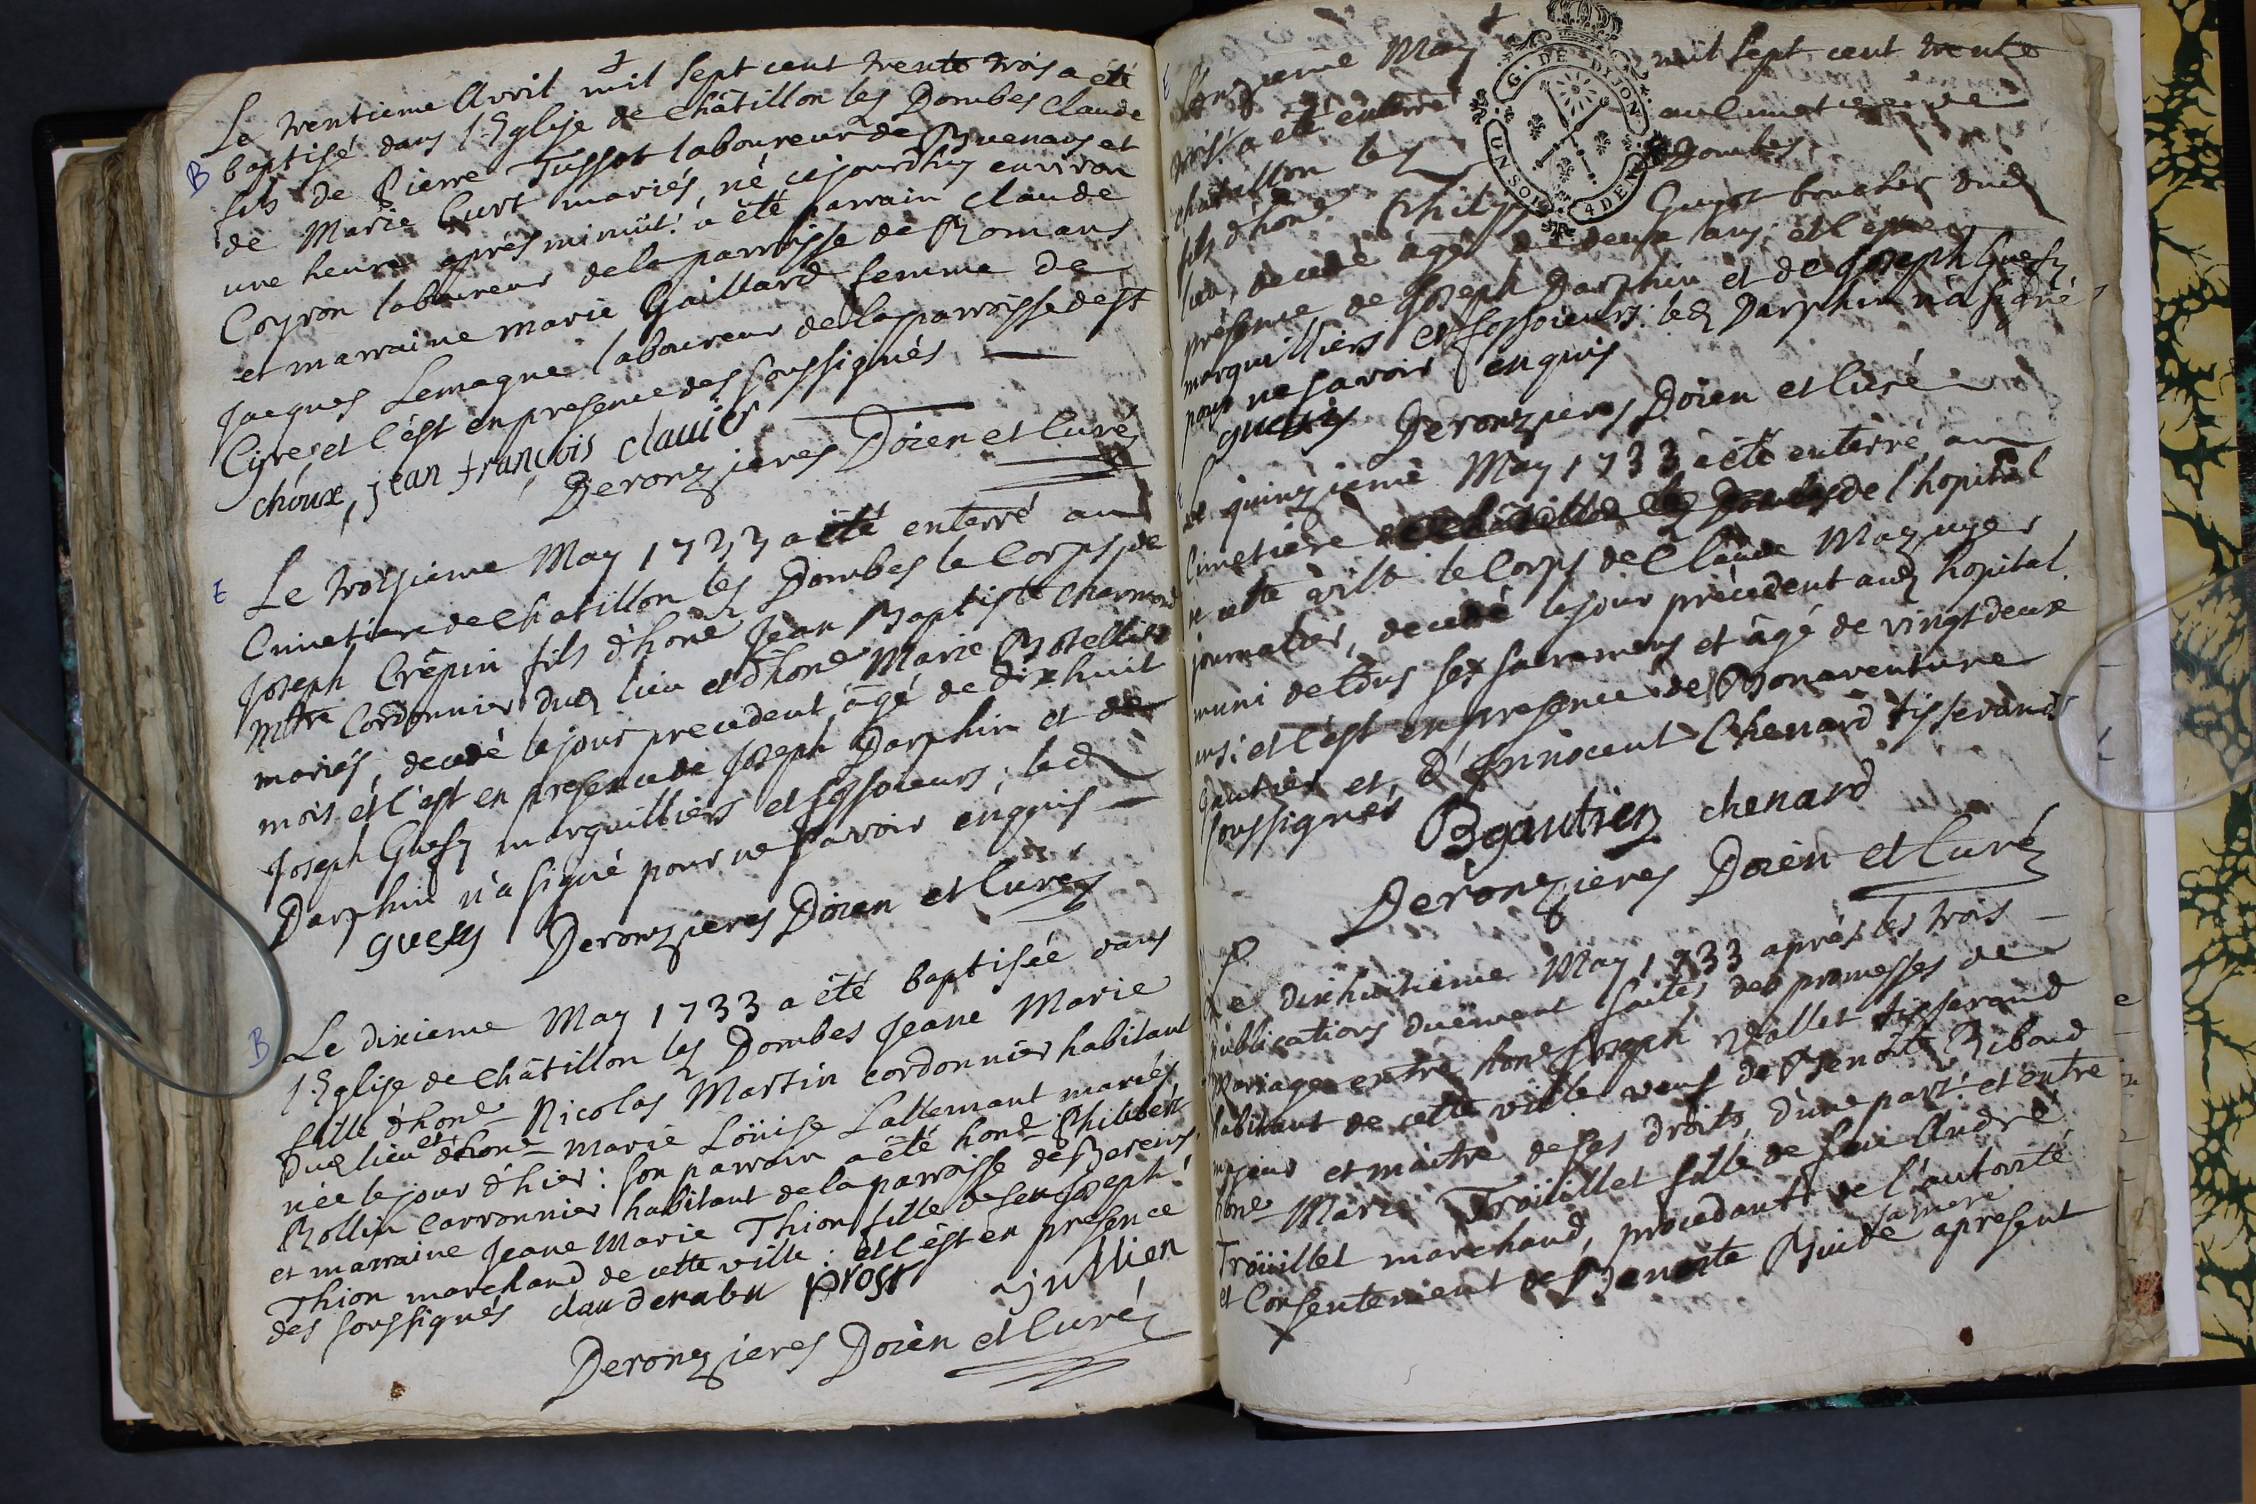 Le trentieme Avril mil sept cent trente trois a été
B baptisé dans l'Eglise de Châtillon les Dombes Claude
fils de Pierre Tussot laboureur de Buenans et
de Marie Curt mariés, né cejourdhuy environ
une heure après minuit: a été parrain Claude
Coyron laboureur de la parroisse de Romans
et marraine marie Gaillard femme de
Jacques Lemagne laboureur de la parroisse de St
Cire: et c'est en presence des soussignés
choux, jean françois clauier
Deronzieres Doien et Curé
E Le troisieme May 1733 a été enterré au
Cimetiere de Chatillon les Dombes le Corps de
Joseph Crêpin fils d'hone Jean Baptiste Charmond
mtre Cordonnier dud lieu et d'hone Marie
mariés, decedé le jour precedent âgé de dixhuit
mois et c'est en presence de Joseph Darphin et de
Joseph Guesy marguilliers et fossoieurs; led
Darphin n'a signé pour ne savoir enquis
guesy Deronzieres Doien et Curé
B Le dixieme May 1733 a été baptisée dans
l'Eglise de Châtillon les Dombes Jeane Marie
fille d'hone Nicolas Martin cordonnier habitant
dud lieu et d'hone marie Loüise Lallemant mariés
née le jour d'hier: son parrain a été hone Philibert
Rollin Carronnier habitant de la parroisse de Bereins
et marraine Jeane Marie Thion fille de feu Joseph
Thion marchand de cette ville: et c'est en presence
des soussignés prost jullien
Deronzieres Doien et Curé
E
May mil sept cent trente
trois a été enterré au Cimetiere de
chatillon les Dombes
fils d'hone Guyot boucher dud
lieu, decedé agé de deux ans: et c'est en
présence de Joseph Darphin et de Joseph Guesy
marguilliers et fossoieurs: led Darphin n'a signé
pour ne savoir enquis
guesy Deronzieres Doien et Curé
G. DE DIJON
UN SOL 4 DEN
E
Le quinzieme May 1733 a été enterré au
Cimetiere de l'hopital
de cette ville le Corps de Claude Mazuyer
journalier, decedé le jour précedent aud hopital
muni de tous ses sacremens et âgé de vingt deux
ans: et c'est en presence de Bonaventure
Gautier et d'Innocent Chenard tisserands
soussignés Bgautier chenard
Deronzieres Doien et Curé
Le dixhuitieme May 1733 après les trois
publications duëment faites des promesses de
Mariage entre hone Joseph Vallet tisserand
habitant de cette ville veuf de Benoite Ribaud
majeur et maitre de ses droits, d'une part: et entre
hone Marie Troüillet fille de feu André
Troüillet marchand, procedant de l'autorité
et Consentement de Benoite Buide sa mere apresent